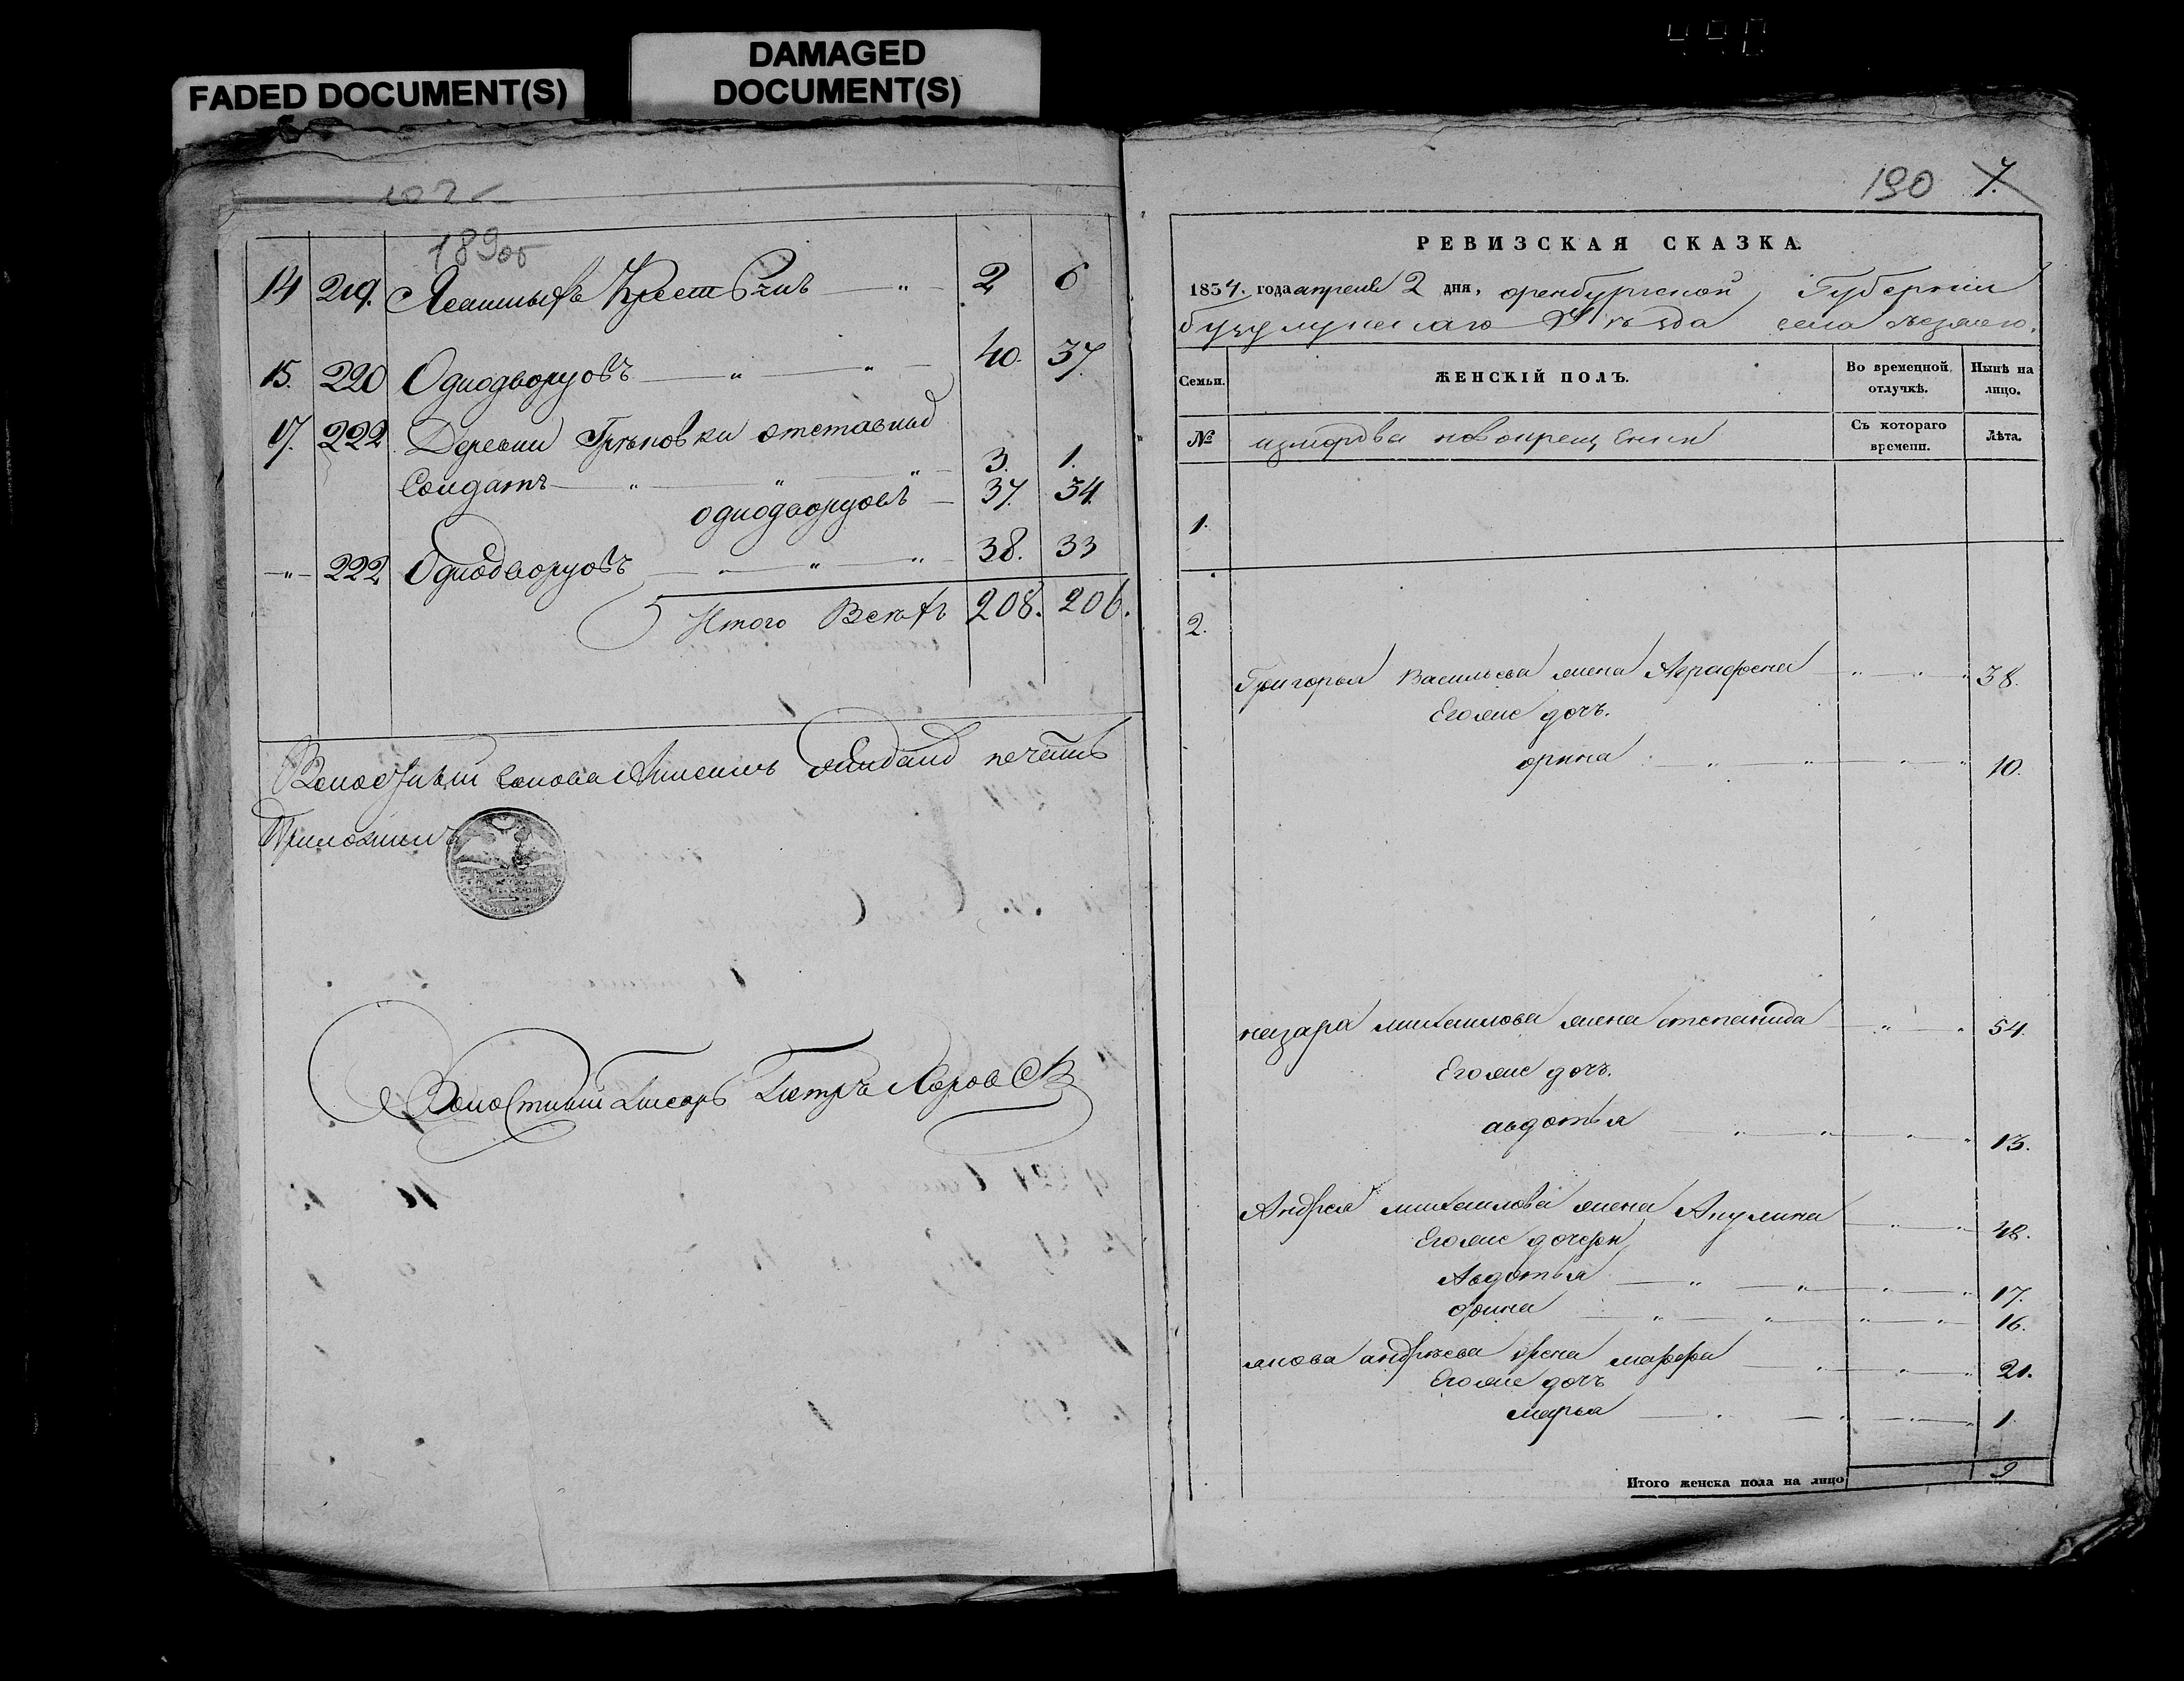 FADED DOCUMENT(S)
DAMAGED
DOCUMENT(S)
490
189об
14 219. Ясашныхъ Крестьянъ — " — 2 6
15. 220 Однодворцовъ — " — " — 40. 37.
17. 222 Деревни Грѣковки отставныхъ
Солдатъ — " — " — " — 3. 1.
однодворцовъ — 37. 34.
— " — 222 Однодворцовъ — " — " — " 38. 33
Итого Всѣхъ 208. 206.
Волостный Голова печать
Приложилъ
Волостный Писарь Петръ
190 7.
РЕВИЗСКАЯ СКАЗКА.
1834. года апреля 2 дня, оренбургской Губерніи
бузулукскаго Уѣзда села
Семьи. ЖЕНСКІЙ ПОЛЪ. Во временной отлучкѣ. Нынѣ на лицо.
№ измордвы новокрещенъ Съ котораго времени. Лѣта.
1.
2.
Григорья Васильева жена Аграфена — " — " — " 38.
Его же дочь.
орина — " — " — " — " 10.
назара михаилова жена степанида — " — " 54.
Его же дочь.
авдотья — " — " — " — " 13.
Андрея михаилова жена Акулина — " — " 48.
Его же дочери
Авдотья — " — " — " — " 17.
орина — " — " — " — " 16.
якова андрѣева жена марфа — " — " — " 21.
Его же дочь
марья — " — " — " — " 1
Итого женска пола на лицо 9